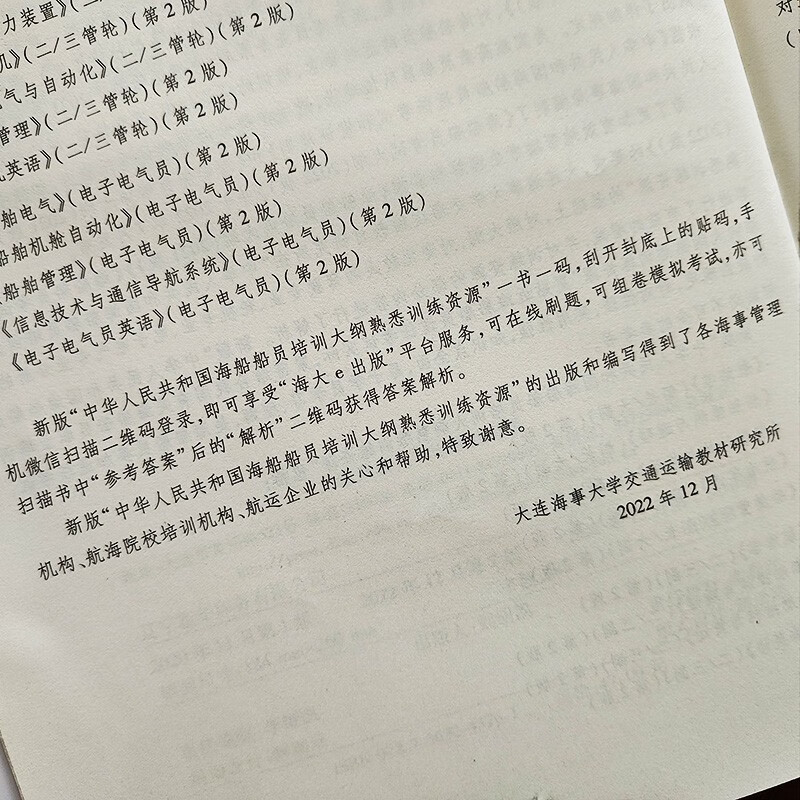 力装置》(二/三管轮)(第2版)
机》(二/三管轮)(第2版)
气与自动化》(二/三管轮)(第2版)
管理》(二/三管轮)(第2版)
机英语》(二/三管轮)(第2版)
舶电气》(电子电气员)(第2版)
船舶机舱自动化》(电子电气员)(第2版)
船舶管理》(电子电气员)(第2版)
《信息技术与通信导航系统》(电子电气员)(第2版)
《电子电气员英语》(电子电气员)(第2版)
新版“中华人民共和国海船船员培训大纲熟悉训练资源”一书一码,刮开封底上的贴码,手
机微信扫描二维码登录,即可享受“海大e出版”平台服务,可在线刷题,可组卷模拟考试,亦可
扫描书中“参考答案”后的“解析”二维码获得答案解析。
新版“中华人民共和国海船船员培训大纲熟悉训练资源”的出版和编写得到了各海事管理
机构、航海院校培训机构、航运企业的关心和帮助,特致谢意。
大连海事大学交通运输教材研究所
2022年12月
对